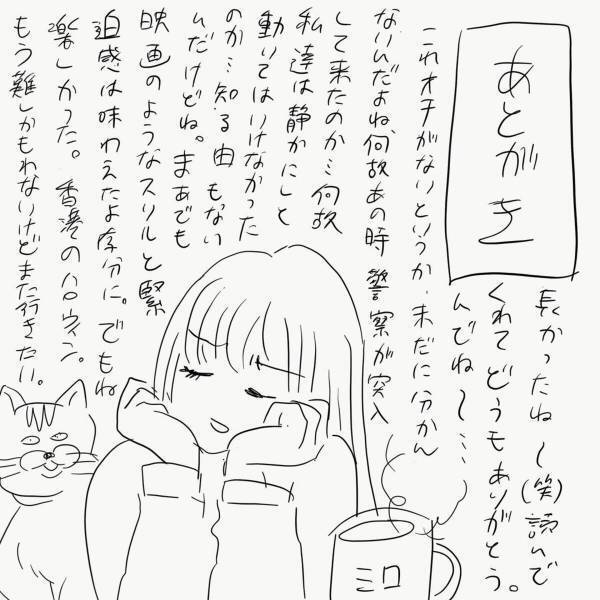 あとがき
長かったね〜(笑)読んで
くれてどうもありがとう。
んでね〜…
これオチがないというか、未だに分かん
ないんだよね、何故あの時警察が突入
して来たのか…何故
私達は静かにしと
動いてはいけなかった
のか…知る由もない
んだけどね。まあでも
映画のようなスリルと緊
迫感は味わえたよ存分に。でもね
楽しかった。香港のハロウィン。
もう難しかもわないけどまた行きたい。
ミロ